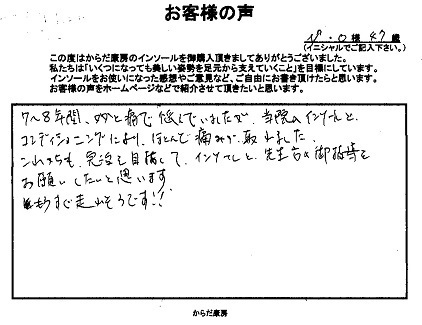 お客様の声
様 47 歳
(イニシャルでご記入下さい。)
この度はからだ康房のインソールを御購入頂きましてありがとうございました。
私たちは「いくつになっても美しい姿勢を足元から支えていくこと」を目標にしています。
インソールをお使いになった感想やご意見など、ご自由にお書き頂けたらと思います。
お客様の声をホームページなどで紹介させて頂きたいと思います。
7〜8年間、痛で悩んでいましたが、当院のインソールと、
コンディショニングにより、ほとんど痛みが取れました。
これからも、完治を目指して、インソールと、先生方の御指導を
お願いしたいと思います。
もうすぐ走れそうです!!
からだ康房